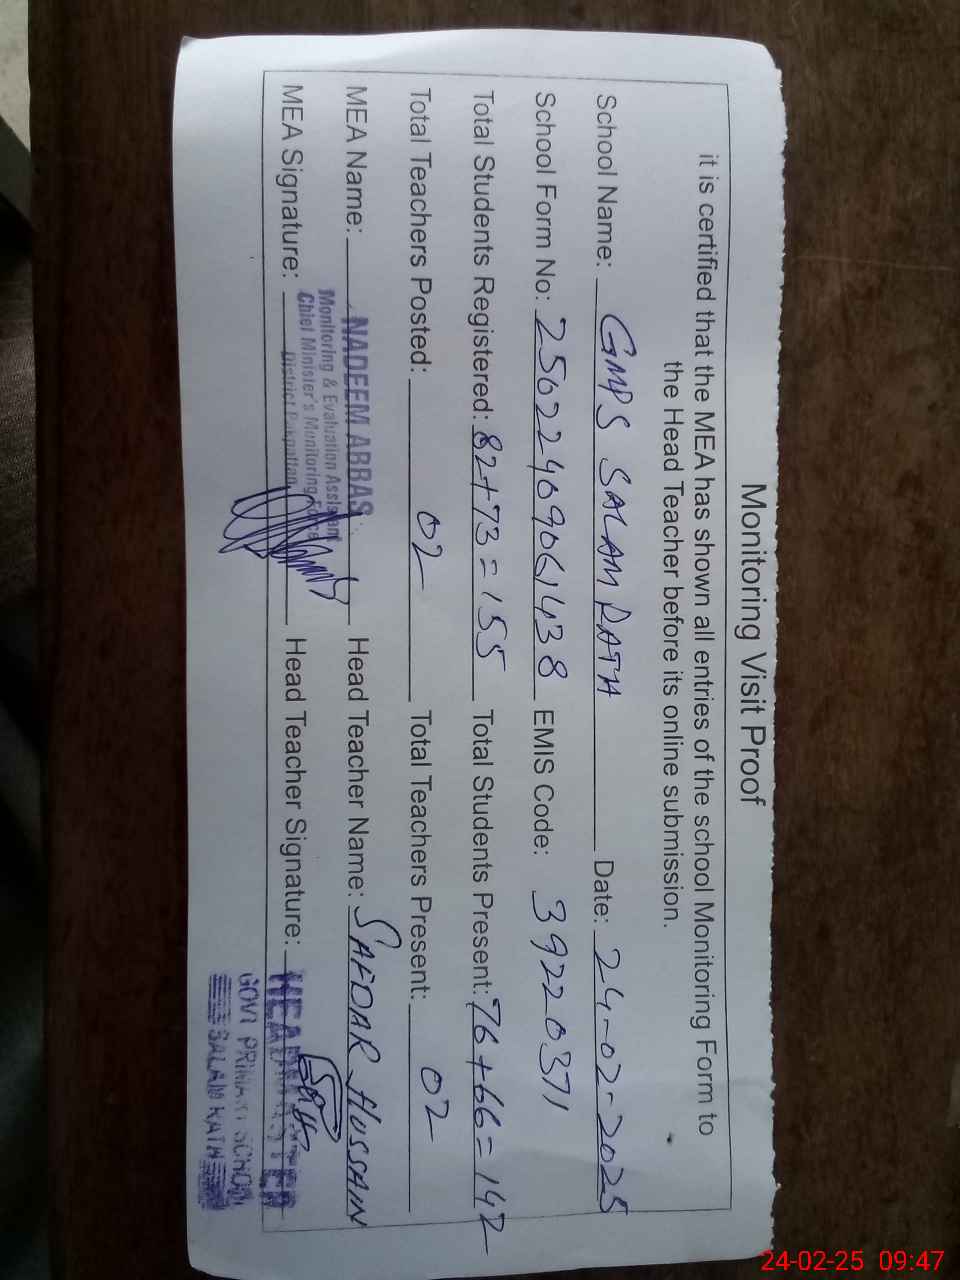 Monitoring Visit Proof
it is certified that the MEA has shown all entries of the school Monitoring Form to
the Head Teacher before its online submission.
School Name: GMPS SALAM RATH Date: 24-02-2025
School Form No: 25022409061438 EMIS Code: 39220371
Total Students Registered: 82+73=155 Total Students Present: 76+66=142
Total Teachers Posted: 02 Total Teachers Present: 02
MEA Name: NADEEM ABBAS Head Teacher Name: SAFDAR HUSSAIN
Monitoring & Evaluation Assistant
Chief Minister's Monitoring Force
District Pakpattan
MEA Signature: Head Teacher Signature: HEADMASTER
GOVT PRIMARY SCHOOL
SALAM RATH
24-02-25 09:47